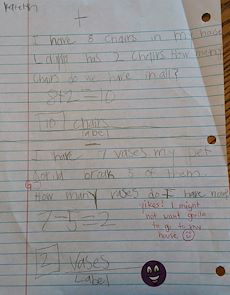 +
I have 8 chairs in my house
Layla has 2 chairs How many
chairs do we have in all?
8+2=10
10 chairs
label
-
I have 7 vases my pet
gorilla break 5 of them.
How many vases do I have now
7-5=2
yikes! I might
not want gorilla
to go to my
house
2 vases
Label